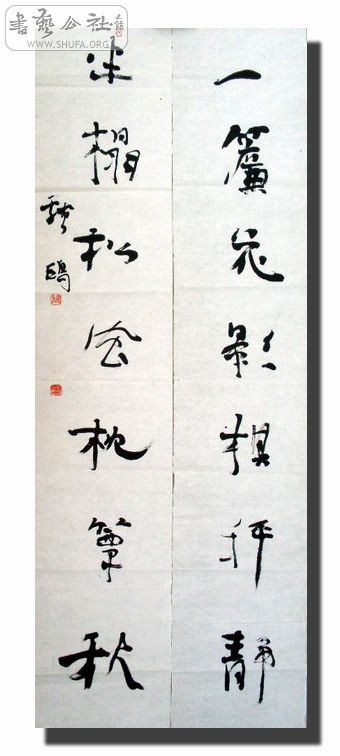 書藝公社
WWW.SHUFA.ORG
一簾花影棋枰靜
半榻松風枕簟秋
鷗